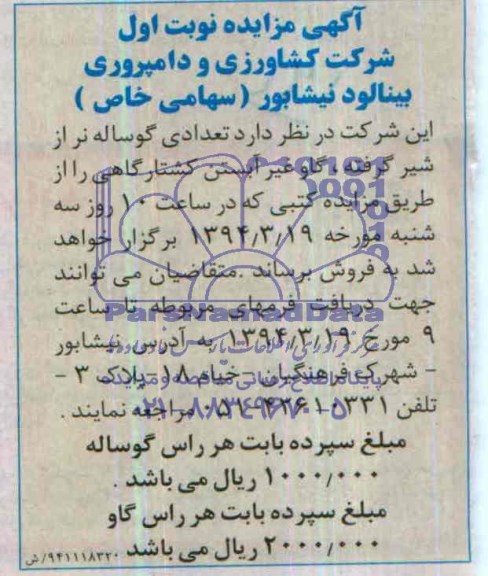 آگهی مزایده نوبت اول
شرکت کشاورزی و دامپروری
بینالود نیشابور (سهامی خاص)
این شرکت در نظر دارد تعدادی گوساله نر از
شیر گرفته ، گاو غیر آبستن کشتارگاهی را از
طریق مزایده کتبی که در ساعت ۱۰ روز سه
شنبه مورخه ۱۳۹۴٫۳٫۱۹ برگزار خواهد
شد به فروش برساند .متقاضیان می توانند
جهت دریافت فرمهای مربوطه تا ساعت
ParsNamadData
۹ مورخ ۱۳۹۴٫۳٫۱۹ به آدرس نیشابور
- شهرک فرهنگیان -خیام ۱۸ -پلاک ۳ -
تلفن مراجعه نمایند .
۰۲۱-۸۸۳۴۹۶۷۰-۵
مبلغ سپرده بابت هر راس گوساله
۱۰۰۰٫۰۰۰ ریال می باشد .
مبلغ سپرده بابت هر راس گاو
۲۰۰۰٫۰۰۰ ریال می باشد
۹۴۱۱۱۸۳۲۰/ش